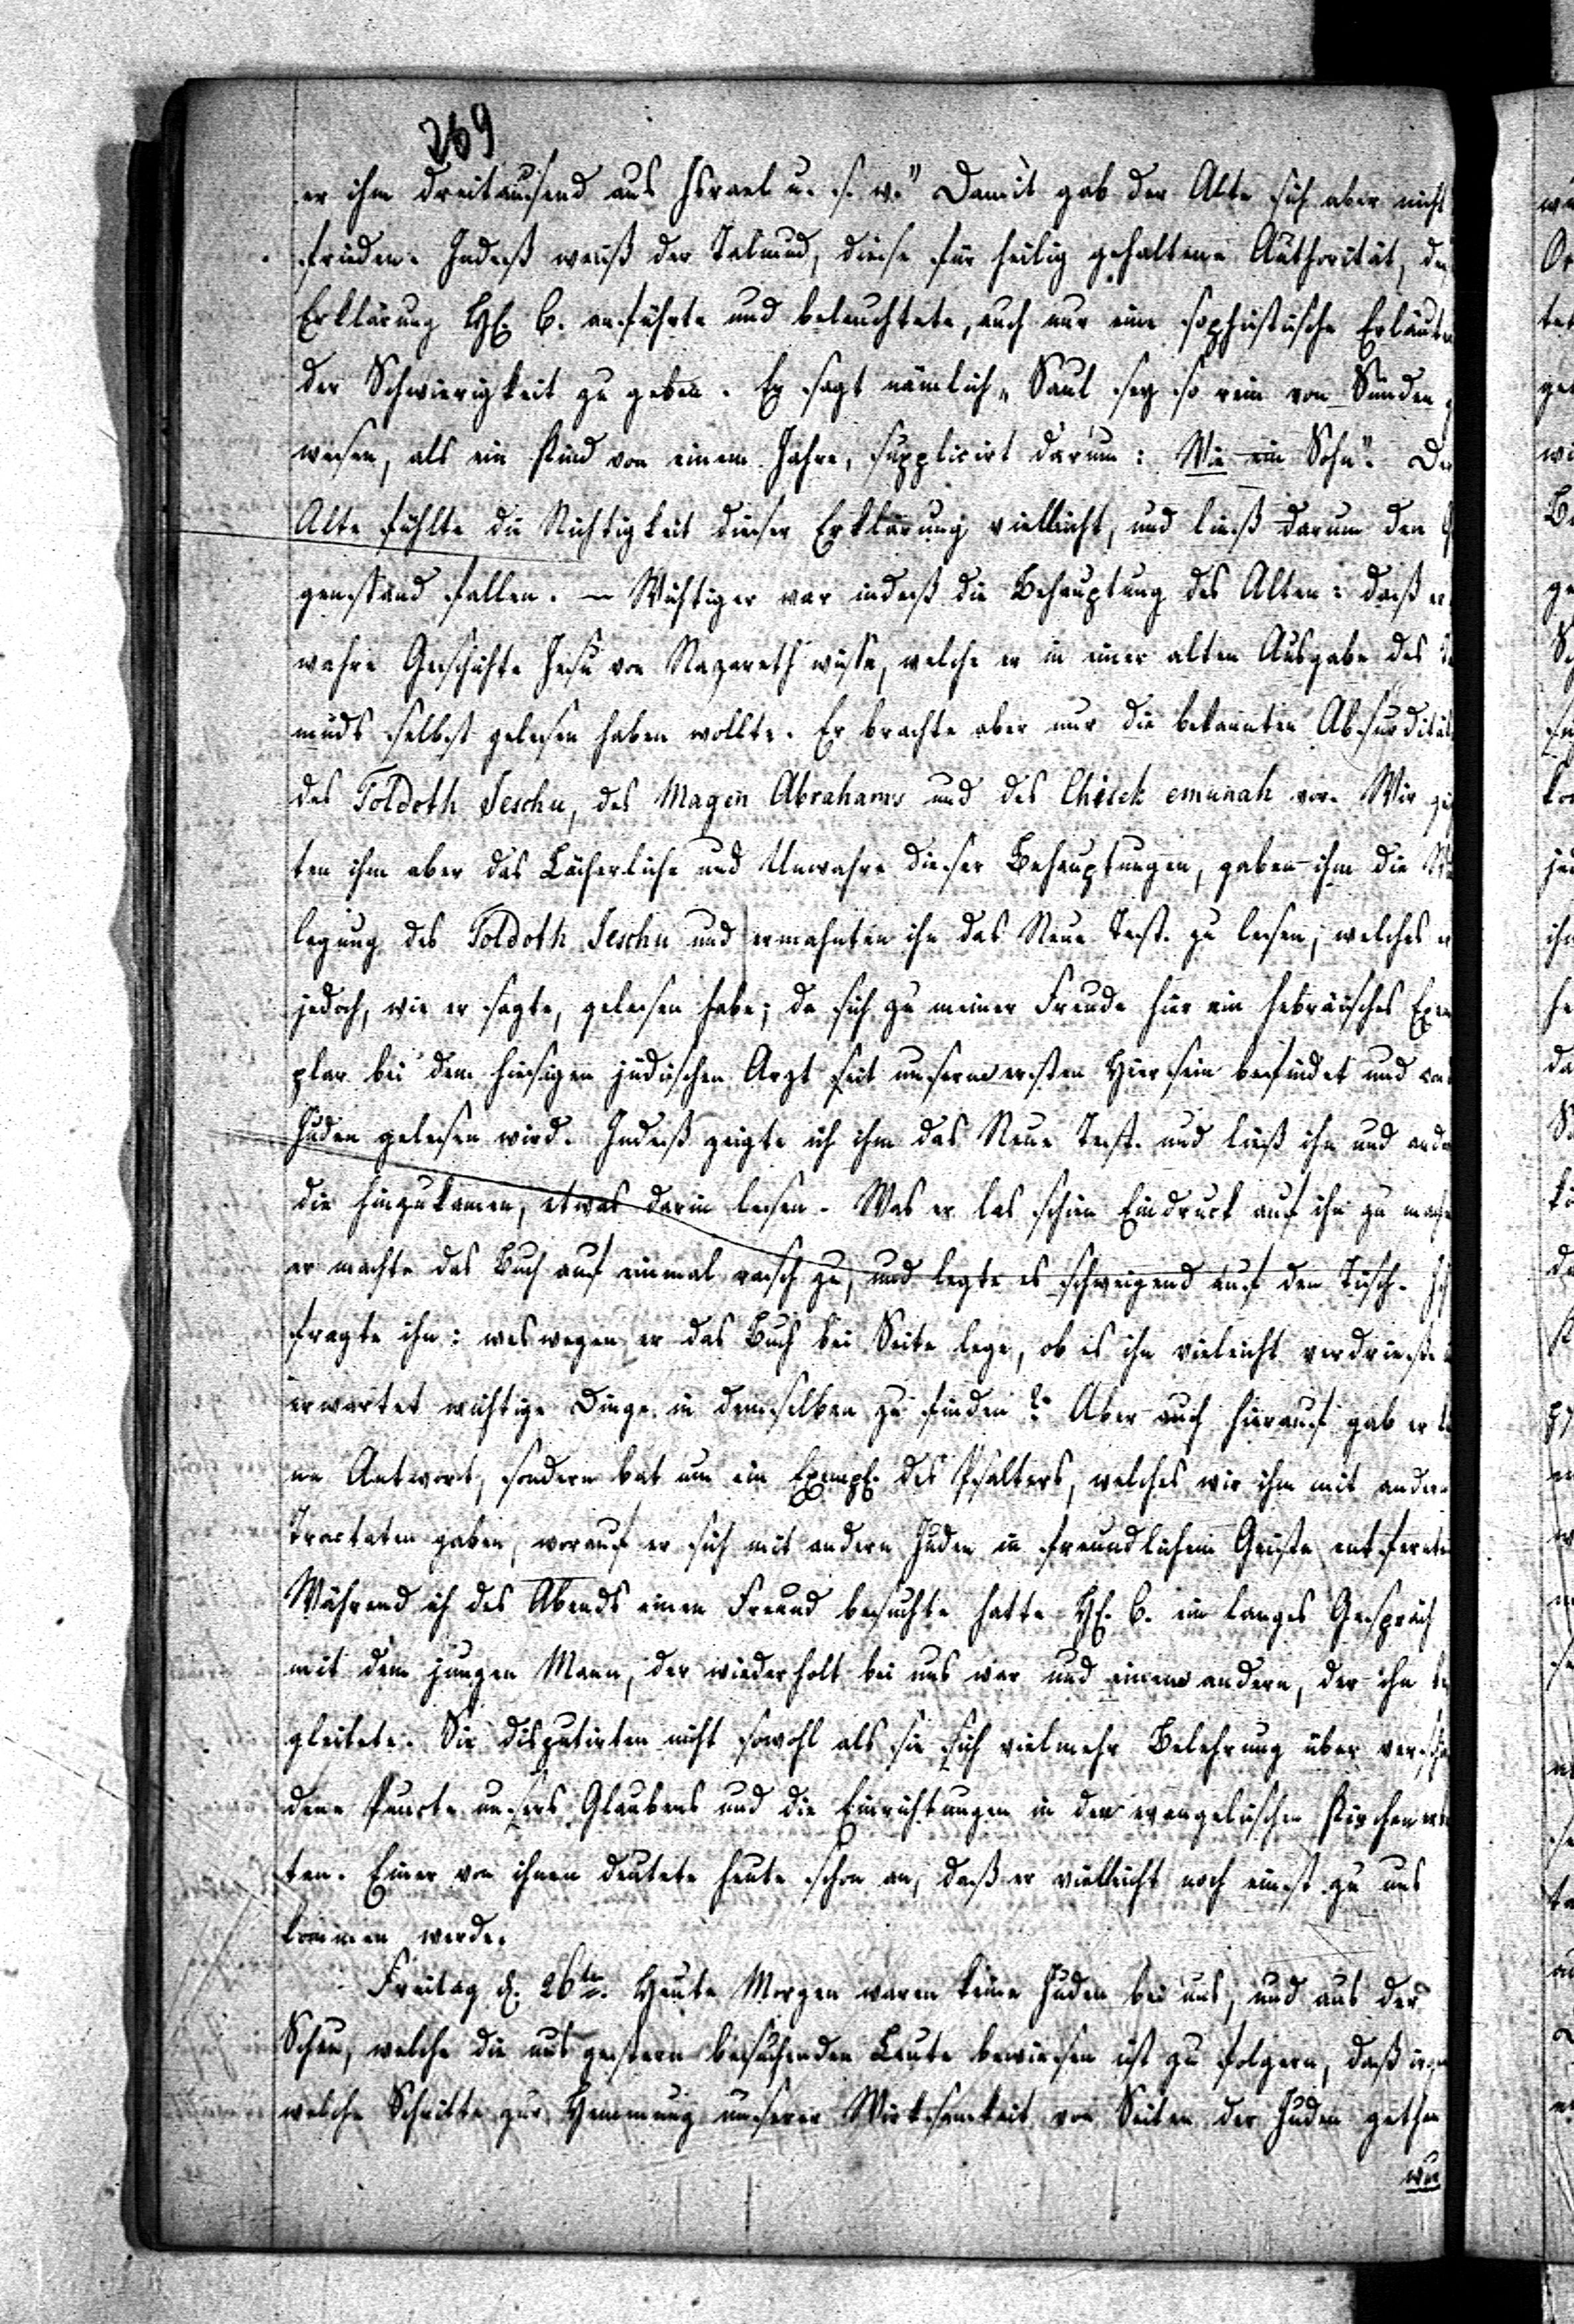 269
er ihm dreitausend aus Israel u. s. w." Damit gab der Alte sich aber nicht
frieden. Indeß weiß der Talmud, diese für heilig gehaltene Authorität, de
Erklärung H. B. anführte und beleuchtete, auch nur eine sophistische Erläute
der Schwierigkeit zu geben. Er sagt nämlich „Saul sey so rein von Sünden g
wesen, als ein Kind von einem Jahre, supplicirt darum: Wie ein Sohn". De
Alte fühlte die Nichtigkeit dieser Erklärung vielleicht, und ließ darum den G
genstand fallen. – Wichtiger war indeß die Behauptung des Alten: daß er
wahre Geschichte Jesu von Nazareth wisse, welche er in einer alten Ausgabe des
muds selbst gelesen haben wollte. Er brachte aber nur die bekannten Absurdität
des Toldoth Jeschu, des Magen Abrahams und des Chisck emunah vor. Wir zeig
ten ihm aber das Lächerliche und Unwahre dieser Behauptungen, gaben ihm die Wi
legung des Toldoth Jeschu und ermahnten ihn das Neue Test. zu lesen, welches er
jedoch, wie er sagte, gelesen habe; da sich zu meiner Freude hier ein hebräisches Exem
plar bei dem hiesigen jüdischen Arzt seit unserm ersten Hiersein befindet und von
Juden gelesen wird. Indeß zeigte ich ihm das Neue Test. und ließ ihn und ande
die hinzukamen, etwas darin lesen. Was er las schien Eindruck auf ihn zu mach
er machte das Buch auf einmal rasch zu, und legte es schweigend auf den Tisch. Ich
fragte ihn: weswegen er das Buch bei Seite lege, ob es ihn vieleicht verdrieße
erwartet wichtige Dinge in demselben zu finden? Aber auch hierauf gab er k
ne Antwort, sondern bat um ein Exempl. des Psalters, welches wir ihm mit andern
Tractaten gaben, worauf er sich mit andern Juden in freundlichem Geiste entfernte
Während ich des Abends einen Freund besuchte hatte H. B. ein langes Gespräch
mit dem jungen Mann, der wiederholt bei uns war und einem andern, der ihn be
gleitete. Sie disputirten nicht sowohl als sie sich vielmehr Belehrung über verschie
dene Puncte unsers Glaubens und die Einrichtungen in der evangelischen Kirchen
ten. Einer von ihnen deutete heute schon an, daß er vielleicht noch einst zu uns
kommen werde.
Freitag d. 26ten. Heute Morgen waren keine Juden bei uns, und aus der
Scheu, welche die uns gestern besuchenden Leute bewiesen ist zu folgern, daß irgend
welche Schritte zur Hemmung unserer Wirksamkeit von Seiten der Juden gethan